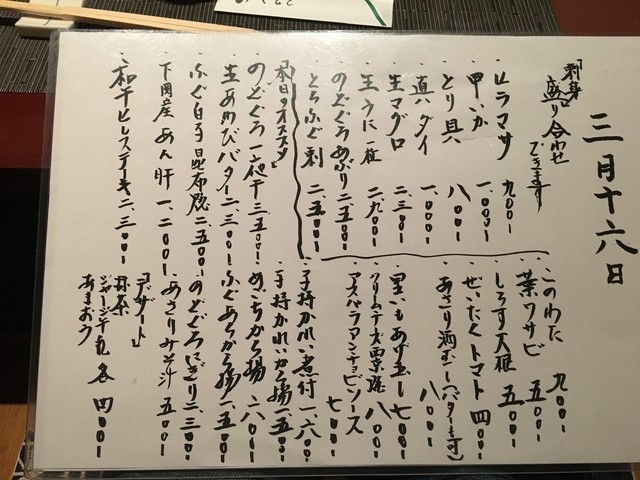 三月十六日
刺身
盛り合わせ
できます
・ヒラマサ 九〇〇ー
・甲いか 一、〇〇〇ー
・とり貝 八〇〇ー
・真ハダイ 一、〇〇〇ー
・生マグロ 二、三〇〇ー
・生うに一枚 二、九〇〇ー
・のどぐろあぶり 二、五〇〇ー
・とらふぐ刺 二、五〇〇ー
・このわた 九〇〇ー
・葉ワサビ 五〇〇ー
・しらす大根 五〇〇ー
・ぜいたくトマト 四〇〇ー
・あさり酒むし(バターも可) 八〇〇ー
・里いもあげ出し 七〇〇ー
・クリームチーズ 八〇〇ー
・アスパラアンチョビソース 七〇〇ー
本日のオススメ
・のどぐろ一夜干 三、五〇〇ー
・生あわびバター 二、三〇〇ー
・ふぐ白子昆布焼 二、五〇〇ー
・下関産あん肝 一、二〇〇ー
・和牛ヒレステーキ 二、三〇〇ー
・子持かれい煮付 一、六〇〇ー
・子持かれいから揚 一、五〇〇ー
・めごちから揚 六〇〇ー
・ふぐあらから揚 一、五〇〇ー
・のどぐろにぎり 二、三〇〇ー
・あさりみそ汁 五〇〇ー
「デザート」
抹茶
ジャージー牛乳 各四〇〇ー
あまおう